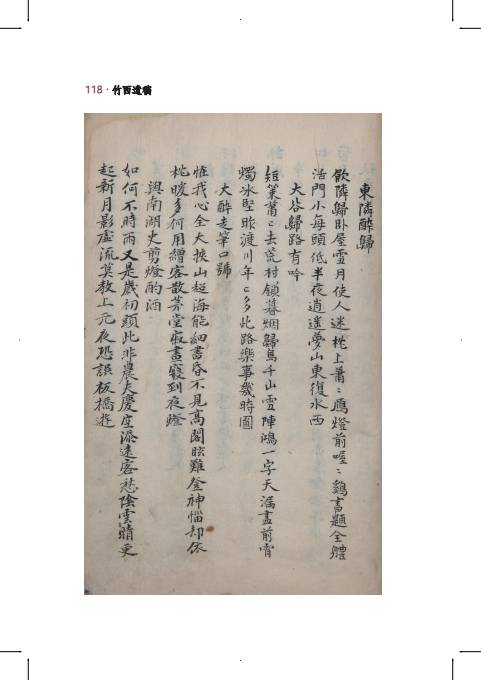 118 · 竹西遺稿
東隣醉歸
飮隣歸臥屋雪月使人迷枕上蕭〻鴈燈前喔〻鷄書題全體
活門小每頭低半夜逍遙夢山東復水西
大谷歸路有吟
短策蕭〻去荒村鎖暮烟歸鳥千山雪陣鴻一字天滿盡前宵
燭冰堅昨渡川年〻多此路樂事幾時圓
大醉走筆口號
怪我心全大挾山超海能細書昏不見高閣眩難登神惱却依
枕暖多何用繒客散茅堂寂晝寢到夜燈
與南湖史剪燈酌酒
如何不時雨又是歲初頭此非農夫慶應添遠客愁陰雲晴更
起新月影虛流莫敎上元夜恐誤板橋遊